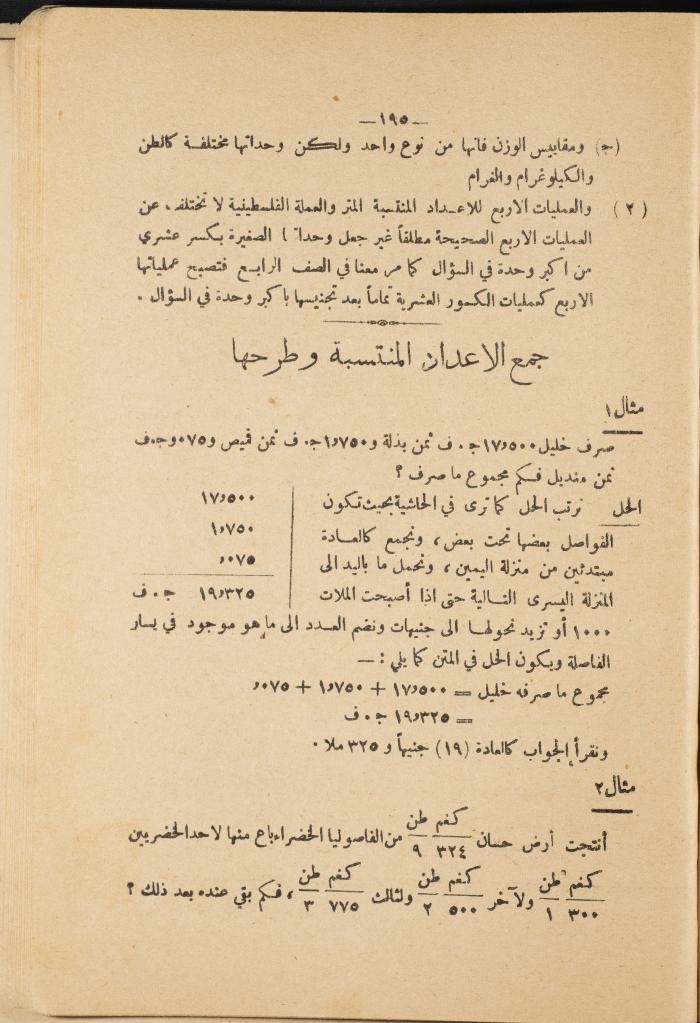 —١٩٥—
(ج) ومقاييس الوزن فانها من نوع واحد ولكن وحداتها مختلفة كالطن
والكيلوغرام والغرام
(٢) والعمليات الاربع للاعداد المنتسبة المتر والعملة الفلسطينية لا تختلف عن
العمليات الاربع الصحيحة مطلقاً غير جعل وحداتها الصغيرة بكسر عشري
من اكبر وحدة في السؤال كما مر معنا في الصف الرابع فتصبح عملياتها
الاربع كعمليات الكسور العشرية تماماً بعد تجنيسها باكبر وحدة في السؤال .
جمع الاعداد المنتسبة وطرحها
مثال ١
صرف خليل ١٧٫٥٠٠ ج . ف ثمن بذلة و ١٫٧٥٠ ج . ف ثمن قميص و ٠٧٥, ج.ف
ثمن منديل فكم مجموع ما صرف ؟
الحل نرتب الحل كما ترى في الحاشية بحيث تكون
١٧٫٥٠٠
الفواصل بعضها تحت بعض ، ونجمع كالعادة
١٫٧٥٠
مبتدئين من منزلة اليمين ، ونحمل ما باليد الى
٠٧٥,
المنزلة اليسرى التالية حتى اذا أصبحت الملات
١٩٫٣٢٥ ج . ف
١٠٠٠ أو تزيد نحولها الى جنيهات ونضم العدد الى ما هو موجود في يسار
الفاصلة ويكون الحل في المتن كما يلي : —
مجموع ما صرفه خليل = ١٧٫٥٠٠ + ١٫٧٥٠ + ٠٧٥,
= ١٩٫٣٢٥ ج . ف
ونقرأ الجواب كالعادة (١٩) جنيهاً و ٣٢٥ ملا .
مثال ٢
كغم طن
أنتجت أرض حسان ٣٢٤ ٩ من الفاصوليا الخضراء باع منها لاحد الخضريين
كغم طن كغم طن كغم طن
٣٠٠ ١ ولآخر ٥٠٠ ٢ ولثالث ٧٧٥ ٣ ، فكم بقي عنده بعد ذلك ؟